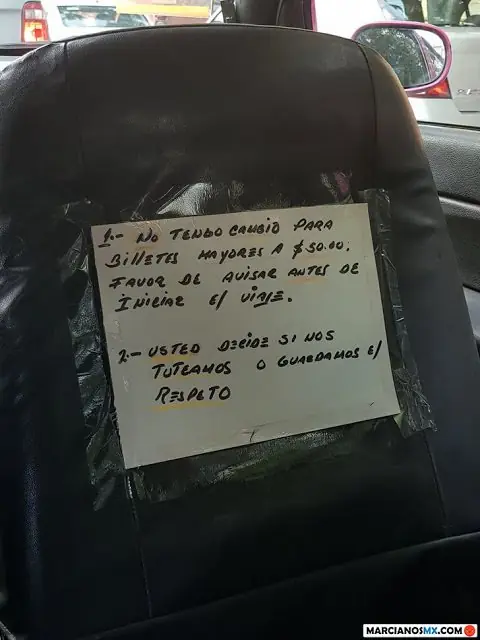 1.- NO TENGO CAMBIO PARA
BILLETES MAYORES A $50.00.
FAVOR DE AVISAR ANTES DE
INICIAR El VIAJE.
2.- USTED DECIDE SI NOS
TUTEAMOS O GUARDAMOS El
RESPETO
MARCIANOSMX.COM